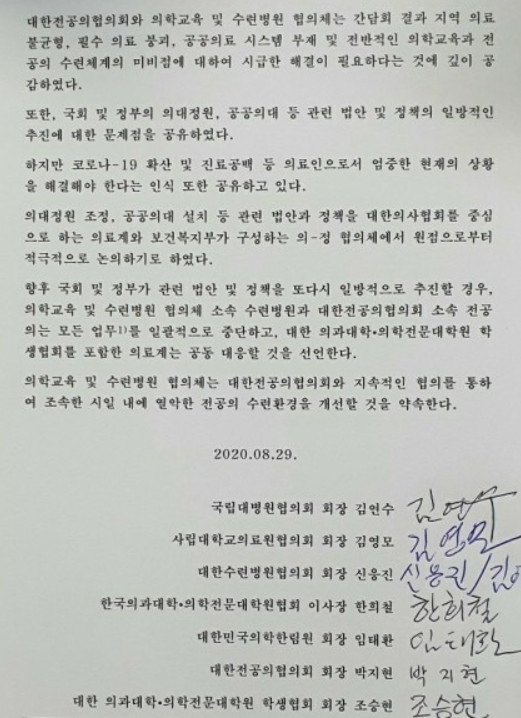 대한전공의협의회와 의학교육 및 수련병원 협의체는 간담회 결과 지역 의료
불균형, 필수 의료 붕괴, 공공의료 시스템 부재 및 전반적인 의학교육과 전
공의 수련체계의 미비점에 대하여 시급한 해결이 필요하다는 것에 깊이 공
감하였다.
또한, 국회 및 정부의 의대정원, 공공의대 등 관련 법안 및 정책의 일방적인
추진에 대한 문제점을 공유하였다.
하지만 코로나-19 확산 및 진료공백 등 의료인으로서 엄중한 현재의 상황
을 해결해야 한다는 인식 또한 공유하고 있다.
의대정원 조정, 공공의대 설치 등 관련 법안과 정책을 대한의사협회를 중심
으로 하는 의료계와 보건복지부가 구성하는 의-정 협의체에서 원점으로부터
적극적으로 논의하기로 하였다.
향후 국회 및 정부가 관련 법안 및 정책을 또다시 일방적으로 추진할 경우,
의학교육 및 수련병원 협의체 소속 수련병원과 대한전공의협의회 소속 전공
의는 모든 업무1)를 일괄적으로 중단하고, 대한 의과대학•의학전문대학원 학
생협회를 포함한 의료계는 공동 대응할 것을 선언한다.
의학교육 및 수련병원 협의체는 대한전공의협의회와 지속적인 협의를 통하
여 조속한 시일 내에 열악한 전공의 수련환경을 개선할 것을 약속한다.
2020.08.29.
국립대병원협의회 회장 김연수 김연수
사립대학교의료원협의회 회장 김영모 김영모
대한수련병원협의회 회장 신응진 신응진/김
한국의과대학•의학전문대학원협회 이사장 한희철 한희철
대한민국의학한림원 회장 임태환 임태환
대한전공의협의회 회장 박지현 박지현
대한 의과대학•의학전문대학원 학생협회 회장 조승현 조승현